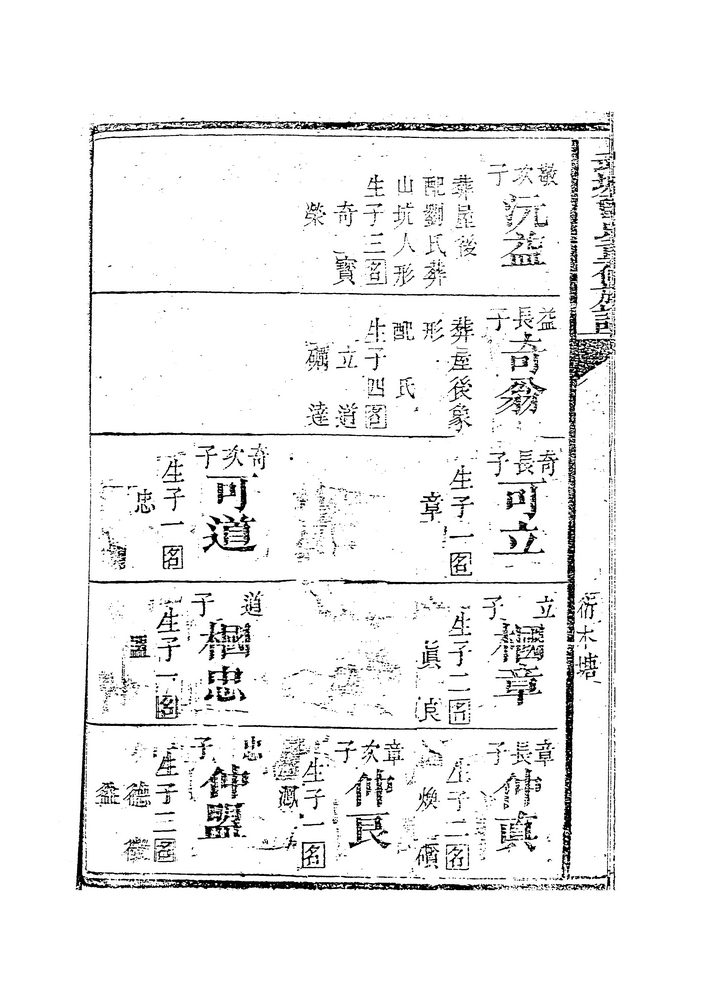 敬次子
沅益
葬屋後
配劉氏葬
山坑人形
生子三名
奇 寶
榮
益長子
奇翁
葬屋後象
形
配 氏
生子四名
立 道
達
奇長子
可立
生子一名
章
奇次子
可道
生子一名
忠
立 子
棞章
生子二名
眞 良
道 子
棞忠
生子一名
盟
章長子
仲真
生子二名
煥
章次子
仲良
生子一名
忠 子
仲盟
生子三名
德
衍木塘